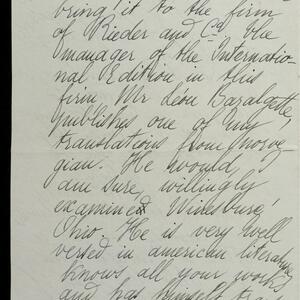 bring it to the firm
of Rieder and Co, the
manager of the Internatio-
nal Edition in this
firm, Mr Léon Bazalgette,
publishes one of my
translations from Norve-
gian. He would, 
am sure, willingly
examined Winesburg,
Ohio. He is very well
versed in american literature
knows all your works
and has himself